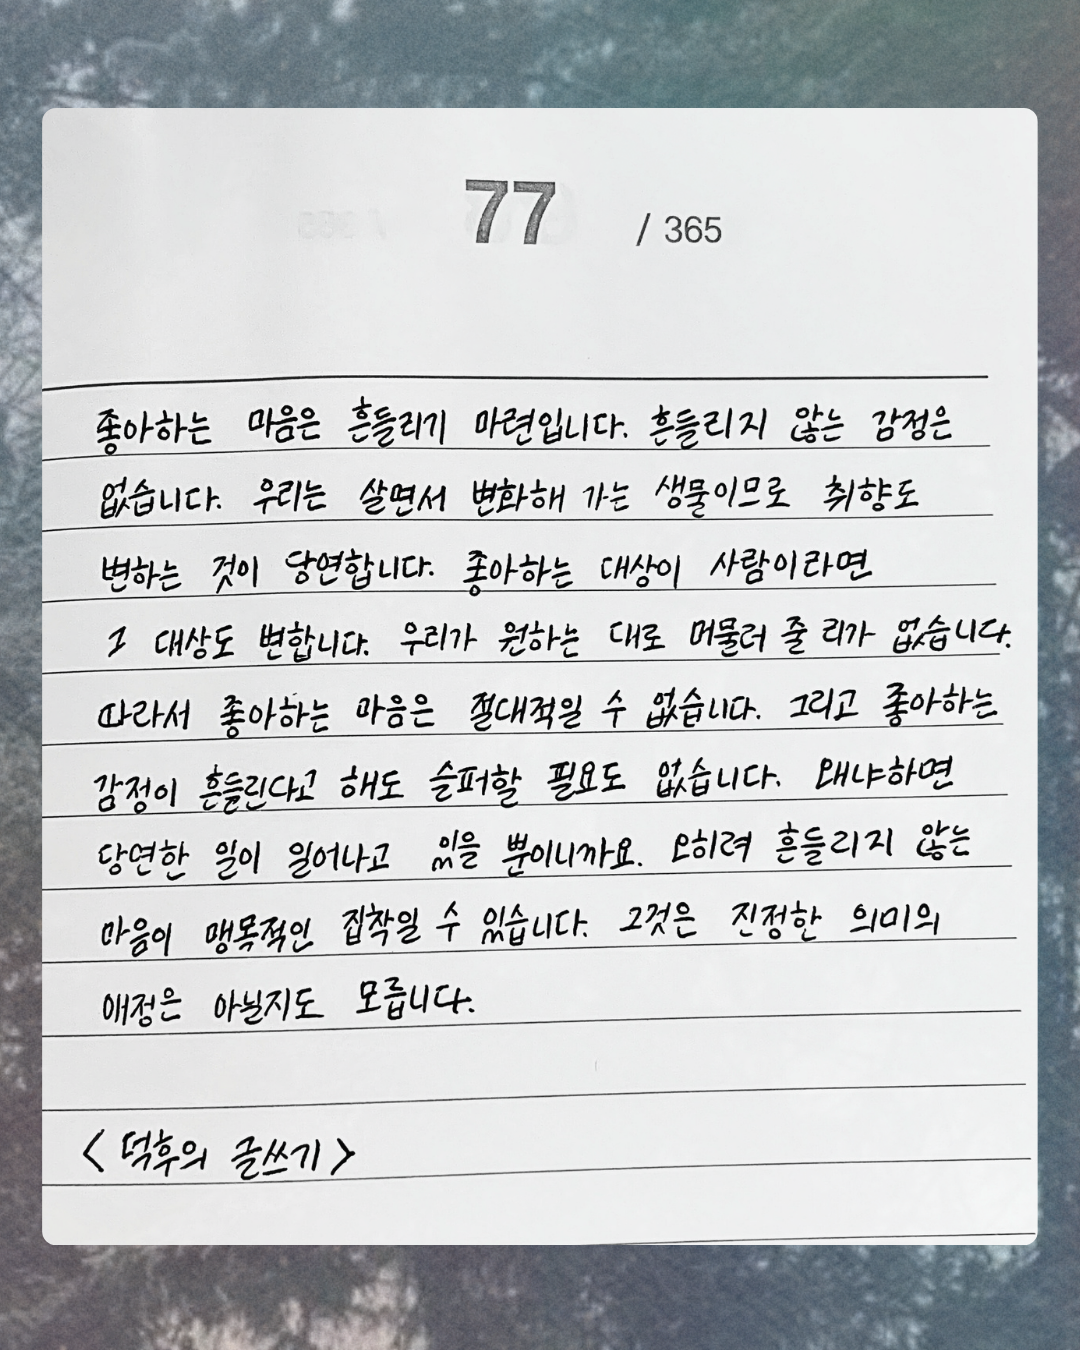 77 / 365
좋아하는 마음은 흔들리기 마련입니다. 흔들리지 않는 감정은
없습니다. 우리는 살면서 변화해 가는 생물이므로 취향도
변하는 것이 당연합니다. 좋아하는 대상이 사람이라면
그 대상도 변합니다. 우리가 원하는 대로 머물러 줄 리가 없습니다.
따라서 좋아하는 마음은 절대적일 수 없습니다. 그리고 좋아하는
감정이 흔들린다고 해도 슬퍼할 필요도 없습니다. 왜냐하면
당연한 일이 일어나고 있을 뿐이니까요. 오히려 흔들리지 않는
마음이 맹목적인 집착일 수 있습니다. 그것은 진정한 의미의
애정은 아닐지도 모릅니다.
<덕후의 글쓰기>